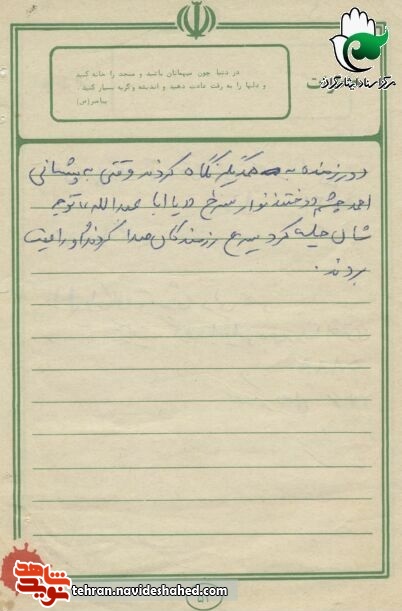 مرکز اسناد ایثارگران
در دنیا چون میهمانان باشید و مسجد را خانه کنید
و دلها را به رقت عادت دهید و اندیشه و گریه بسیار کنید.
پیامبر(ص)
دو رزمنده به همدیگر نگاه کردند وقتی به پیشانی
احمد چشم دوختند نوار سرخ یا ابا عبدالله توجه
شان جلب کرد سریع رزمندگان صدا کردند او را عقب
بردند.
شاهد
نوید
tehran.navideshahed.com